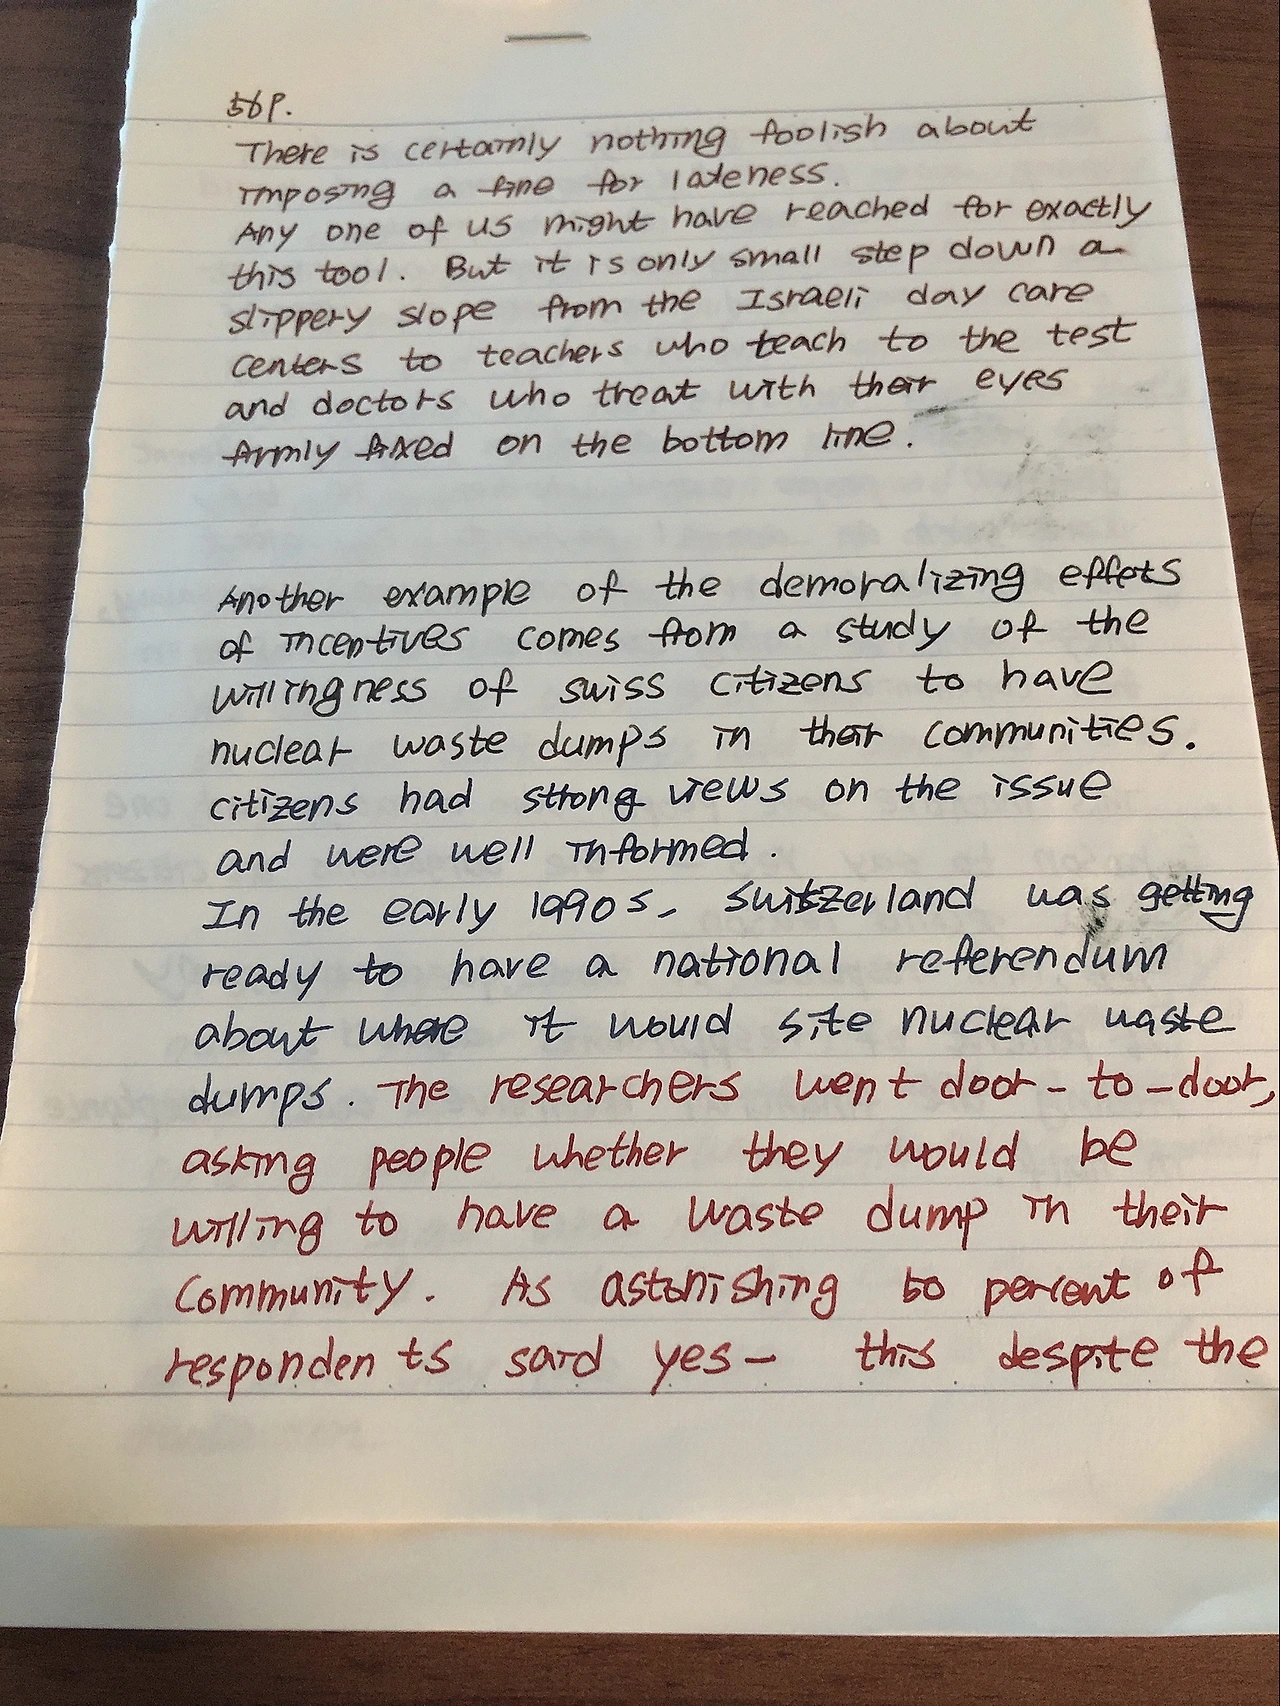 56P.
There is certainly nothing foolish about
imposing a fine for lateness.
Any one of us might have reached for exactly
this tool. But it is only small step down a
slippery slope from the Israeli day care
centers to teachers who teach to the test
and doctors who treat with their eyes
firmly fixed on the bottom line.
Another example of the demoralizing effets
of incentives comes from a study of the
willingness of swiss citizens to have
nuclear waste dumps in their communities.
citizens had strong views on the issue
and were well informed.
In the early 1990s, Switzerland was getting
ready to have a national referendum
about where it would site nuclear waste
dumps. The researchers went door-to-door,
asking people whether they would be
willing to have a waste dump in their
Community. As astonishing 50 percent of
respondents said yes- this despite the